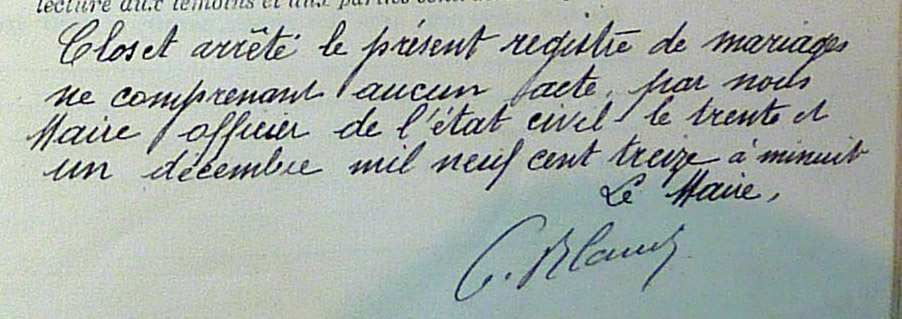 lecture aux témoins et aux parties
Clos et arrêté le présent registre de mariages
ne comprenant aucun acte, par nous
Maire officier de l'état civil le trente et
un décembre mil neuf cent treize à minuit
Le Maire,